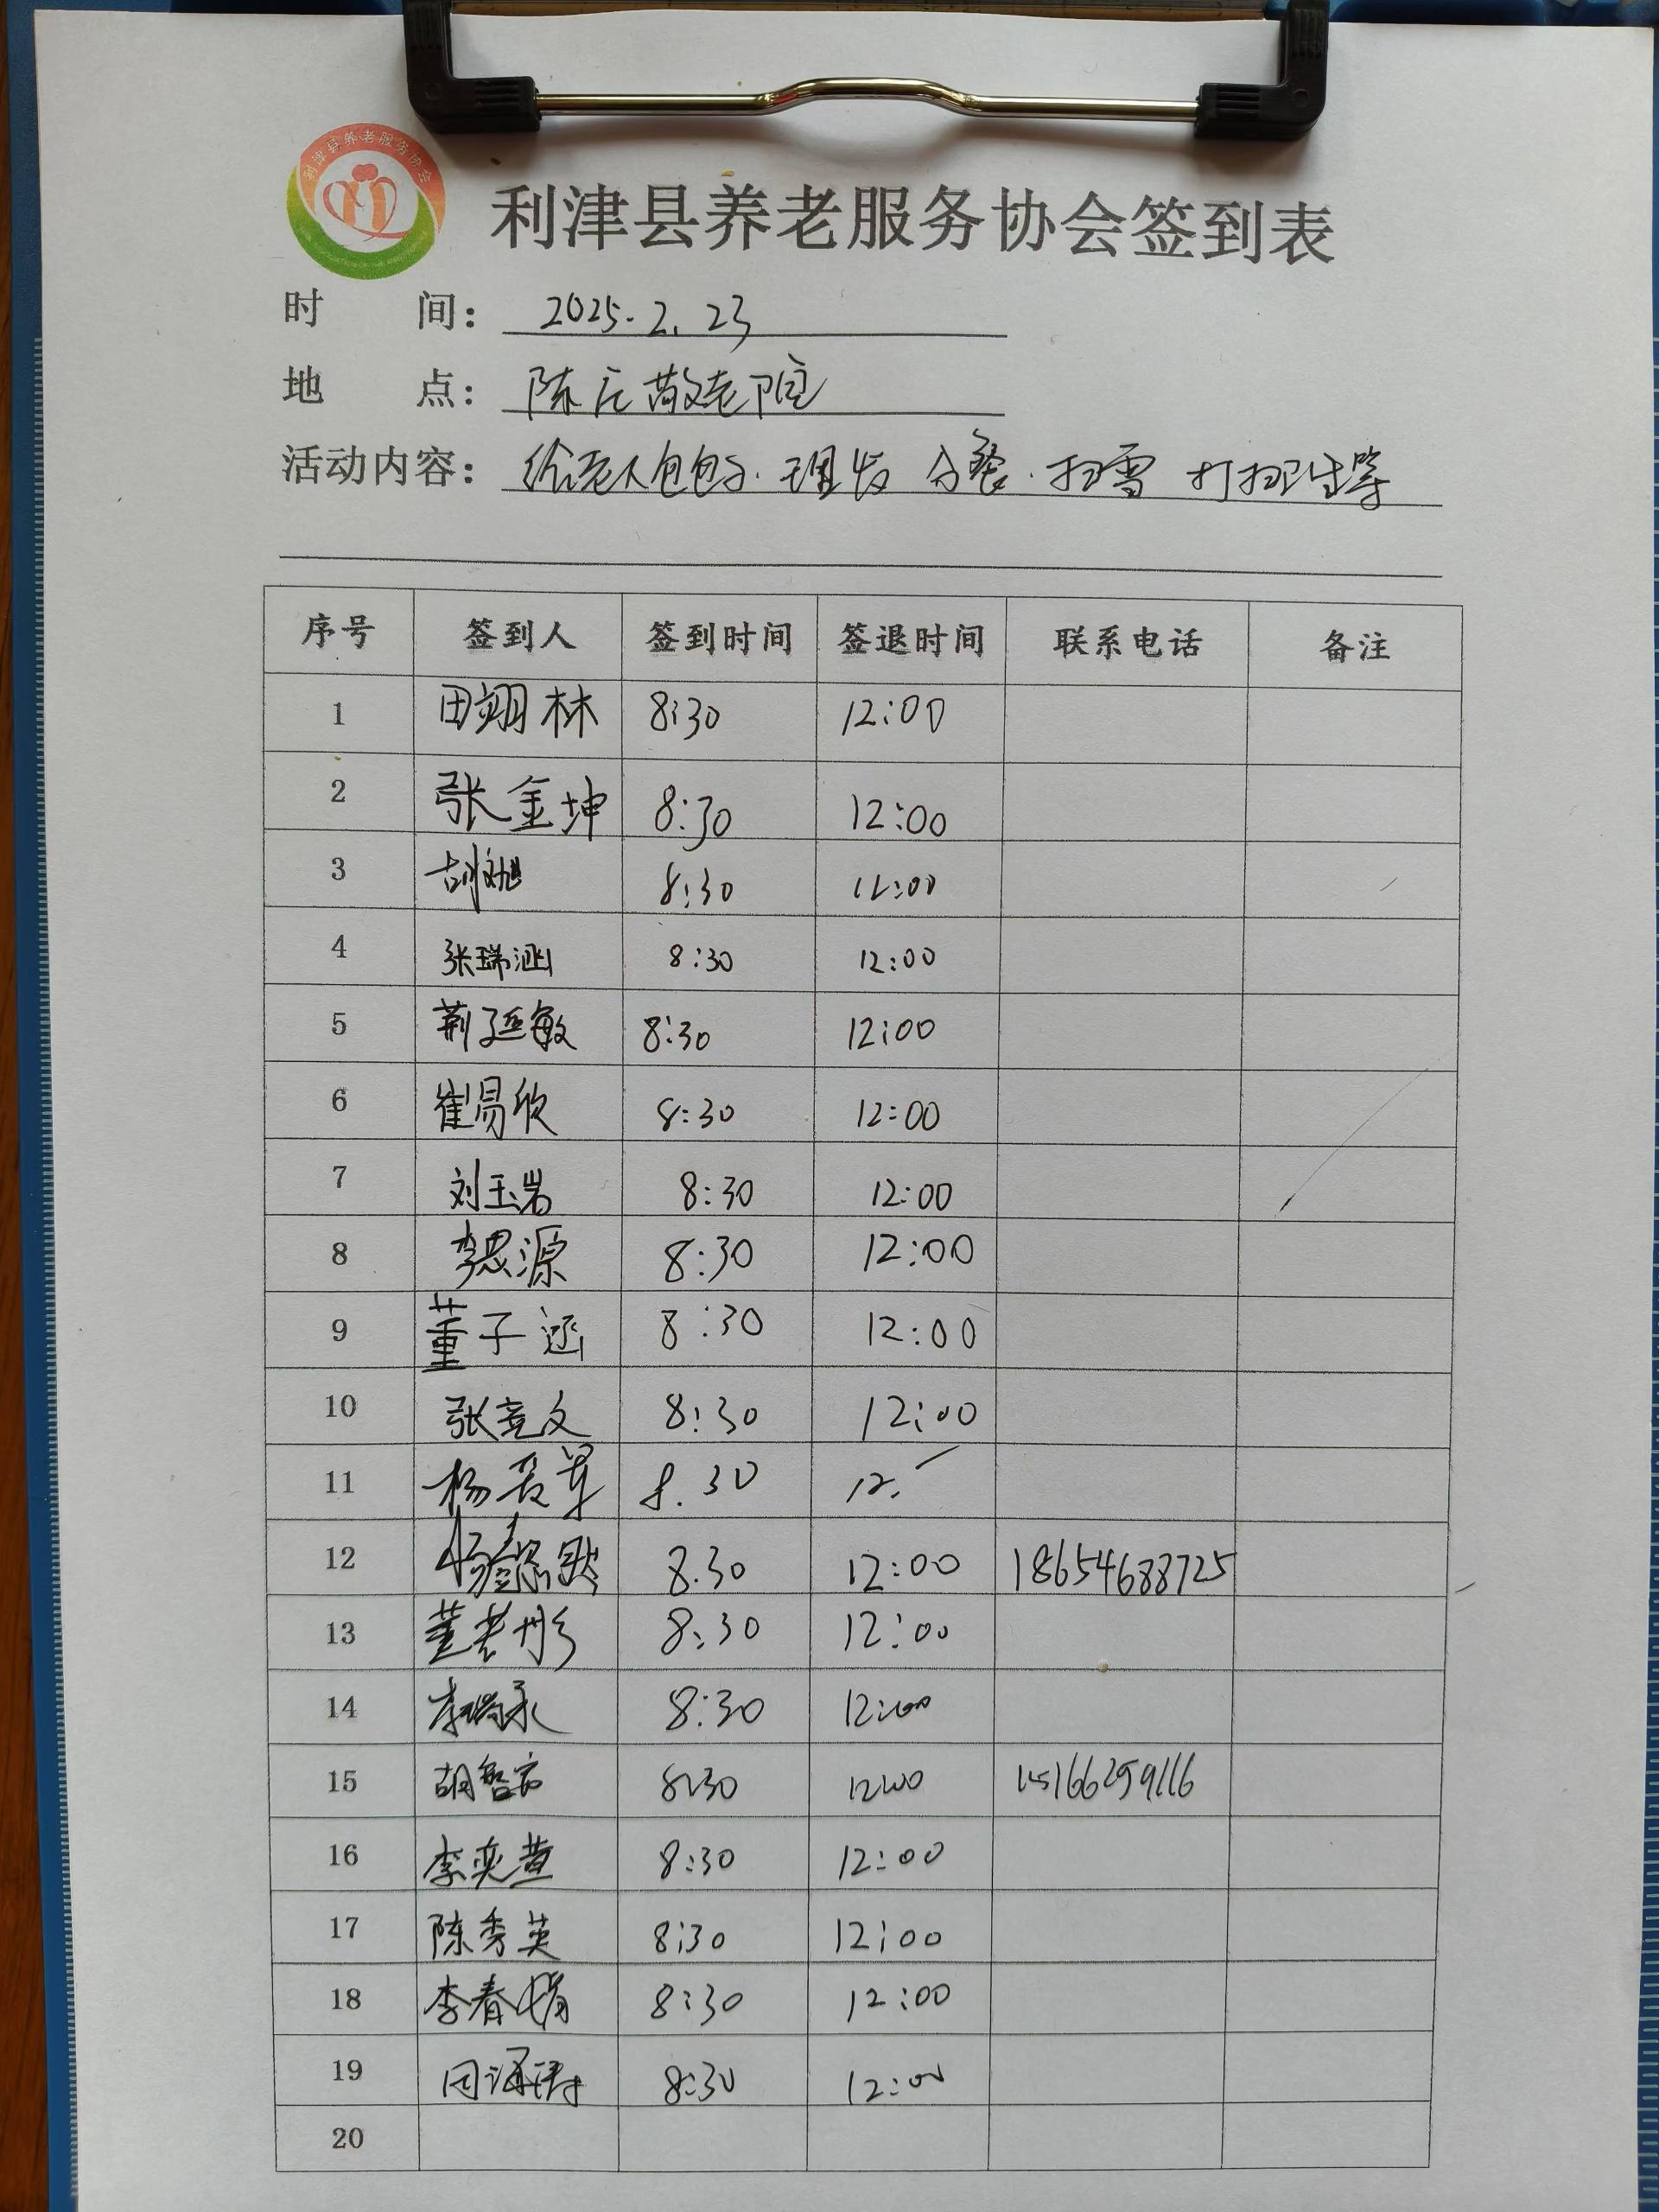 利津县养老服务协会
利津县养老服务协会签到表
时 间： 2025.2.23
地 点： 陈庄敬老院
活动内容： 给老人包包子.理发 分餐.扫雪 打扫卫生等
序号 签到人 签到时间 签退时间 联系电话 备注
1 田翊林 8:30 12:00
2 张金坤 8:30 12:00
3 8:30 12:00
4 张瑞涵 8:30 12:00
5 荆延敏 8:30 12:00
6 崔易欣 8:30 12:00
7 刘玉岩 8:30 12:00
8 李思源 8:30 12:00
9 董子涵 8:30 12:00
10 张竞文 8:30 12:00
11 8.30 12.
12 8.30 12:00 18654688725
13 8:30 12:00
14 8:30 12:00
15 8:30 12:00 15166259116
16 李奕萱 8:30 12:00
17 陈秀英 8:30 12:00
18 李春娟 8:30 12:00
19 8:30 12:00
20